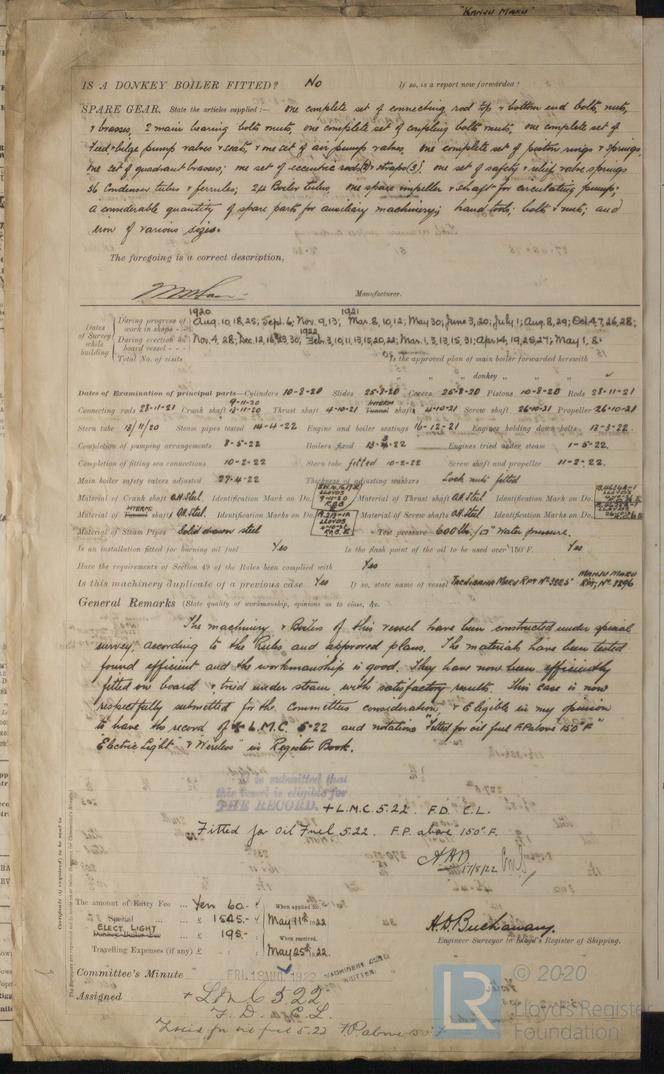 "KANJU MARU"
IS A DONKEY BOILER FITTED? No If so, is a report now forwarded?
SPARE GEAR. State the articles supplied:— one complete set of connecting rod top & bottom end bolts, nuts,
& brasses, 2 main bearing bolts & nuts, one complete set of coupling bolts & nuts, one complete set of
feed & bilge pump valves & seats, & one set of air pump valves, one complete set of piston rings & springs,
one set of quadrant brasses; one set of eccentric & straps one set of safety & relief valve springs
36 Condenser tubes & ferrules; 24 Boiler tubes, one spare impeller & shaft for circulating pump;
a considerable quantity of spare parts for auxiliary machinery; hand tools; bolts & nuts; and
iron of various sizes.
The foregoing is a correct description,
Manufacturer.
Dates of Survey while building
1920 1921
During progress of work in shops - - Aug. 10, 18, 25; Sept. 6; Nov. 9, 13; Mar. 8, 10, 12; May 30; June 3, 20; July 1; Aug. 8, 29; Oct. 4, 7, 26, 28;
1922
During erection on board vessel - - - Nov. 4, 28; Dec. 12, 16, 30; Feb. 3, 10, 11, 13, 15, 20, 22; Mar. 1, 3, 13, 15, 31; Apr. 14, 19, 26, 27; May 1, 8.
Total No. of visits
Is the approved plan of main boiler forwarded herewith
" " " donkey " " "
Dates of Examination of principal parts—Cylinders 10-8-20 Slides 25-8-20 Covers 25-8-20 Pistons 10-8-20 Rods 28-11-21
Connecting rods 28-11-21 Crank shaft 9-11-20 Thrust shaft 4-10-21 INTERM. Tunnel shafts 4-10-21 Screw shaft 26-10-21 Propeller 26-10-21
Stern tube 13/11/20 Steam pipes tested 14-4-22 Engine and boiler seatings 16-12-21 Engines holding down bolts 13-3-22
Completion of pumping arrangements 8-5-22 Boilers fixed 13-3-22 Engines tried under steam 1-5-22
Completion of fitting sea connections 10-2-22 Stern tube fitted 10-2-22 Screw shaft and propeller 11-2-22
Main boiler safety valves adjusted 27-4-22 Thickness of adjusting washers Lock nuts fitted
Material of Crank shaft O.H. Steel Identification Mark on Do. Material of Thrust shaft O.H. Steel Identification Mark on Do.
Material of INTERM. Tunnel shafts O.H. Steel Identification Marks on Do. Material of Screw shafts O.H. Steel Identification Marks on Do.
LLOYDS
Material of Steam Pipes Solid drawn steel Test pressure 600 lbs./□" Water pressure.
Is an installation fitted for burning oil fuel Yes Is the flash point of the oil to be used over 150°F. Yes
Have the requirements of Section 49 of the Rules been complied with Yes
Is this machinery duplicate of a previous case Yes If so, state name of vessel
General Remarks (State quality of workmanship, opinions as to class, &c.
The machinery & Boilers of this vessel have been constructed under special
survey, according to the Rules and approved plans. The materials have been tested
found efficient and the workmanship is good. They have now been efficiently
fitted on board & tried under steam, with satisfactory results. This case is now
respectfully submitted for the Committees consideration, & Eligible in my opinion
to have the record of + L.M.C. 5-22 and notation "Fitted for oil fuel F.P. above 150°F"
"Electric Light" & "Wireless" in Register Book.
It is submitted that
this vessel is eligible for
THE RECORD. + L.M.C. 5.22. F.D. C.L.
Fitted for Oil Fuel 5.22. F.P. above 150°F.
17/8/22
Certificate (if required) to be sent to
The amount of Entry Fee ... Yen 60.- When applied for,
Special ... £ 1545.- May 11th 1922
ELECT. LIGHT
Donkey Boiler Fee ... £ 195.- When received,
Travelling Expenses (if any) £ May 25th 22
H.D. Buchanan.
Engineer Surveyor to Lloyd's Register of Shipping.
Committee's Minute FRI. 18 AUG. 1922
MACHINERY CERT. WRITTEN.
Assigned + LMC 5 22
F. D. C. L.
Fitted for oil fuel 5.22 F.P. above 150°F
LR
© 2020
Lloyd's Register
Foundation